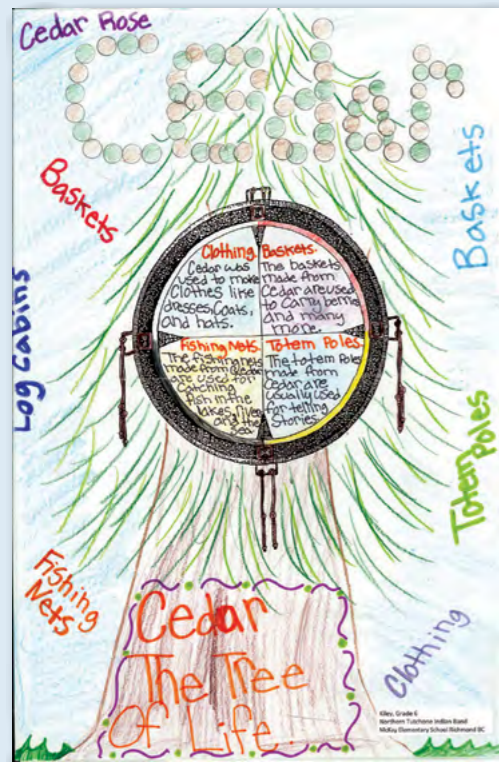 Cedar Rose
Cedar
Baskets
Baskets
Log Cabins
Clothing
Cedar was
used to make
Clothes like
dresses, Coats,
and hats.
Baskets.
The baskets
made from
Cedar are used
to carry berries
and many
more.
Fishing Nets.
The fishing nets
made from Cedar
are used for
Catching
fish in the
lakes, river
and the
Sea.
Totem Poles.
The totem Poles
made from
Cedar are
usually used
for telling
Stories.
Totem
Poles
Fishing
Nets
Clothing
Cedar
The Tree
Of Life.
Kiley, Grade 6
Northern Tutchone Indian Band
McKay Elementary School Richmond BC